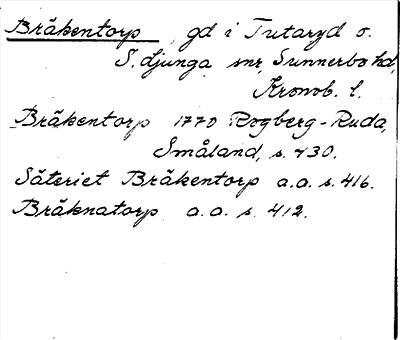 Bräkentorp gd i Tutaryd o.
S. Ljunga snr, Sunnerbo hd,
Kronob. l.
Bräkentorp 1770 Rogberg-Ruda,
Småland, s. 430.
Säteriet Bräkentorp a.a. s. 416.
Bräknatorp a.a. s. 412.